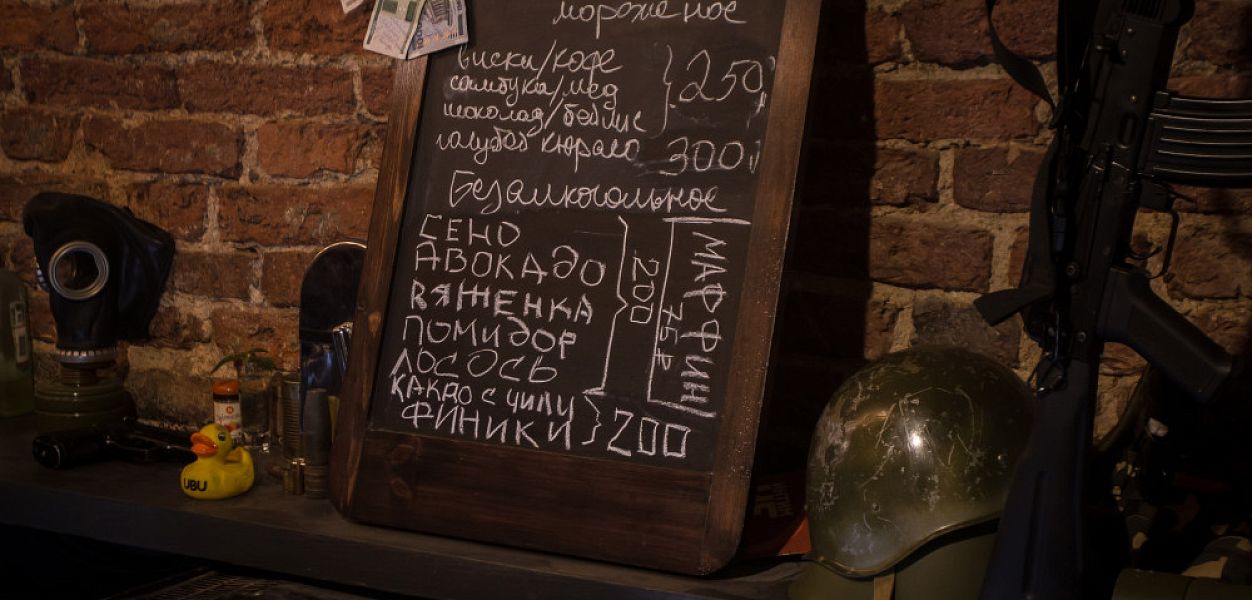 мороженое
виски/кофе
самбука/мед
шоколад/бейлис
250
голубой кюрасо 300
Безалкогольное
СЕНО
АВОКАДО
РЯЖЕНКА
ПОМИДОР
ЛОСОСЬ
200
МАФФИН
75 ₽
КАКАО С ЧИЛИ
ФИНИКИ
200
UBU